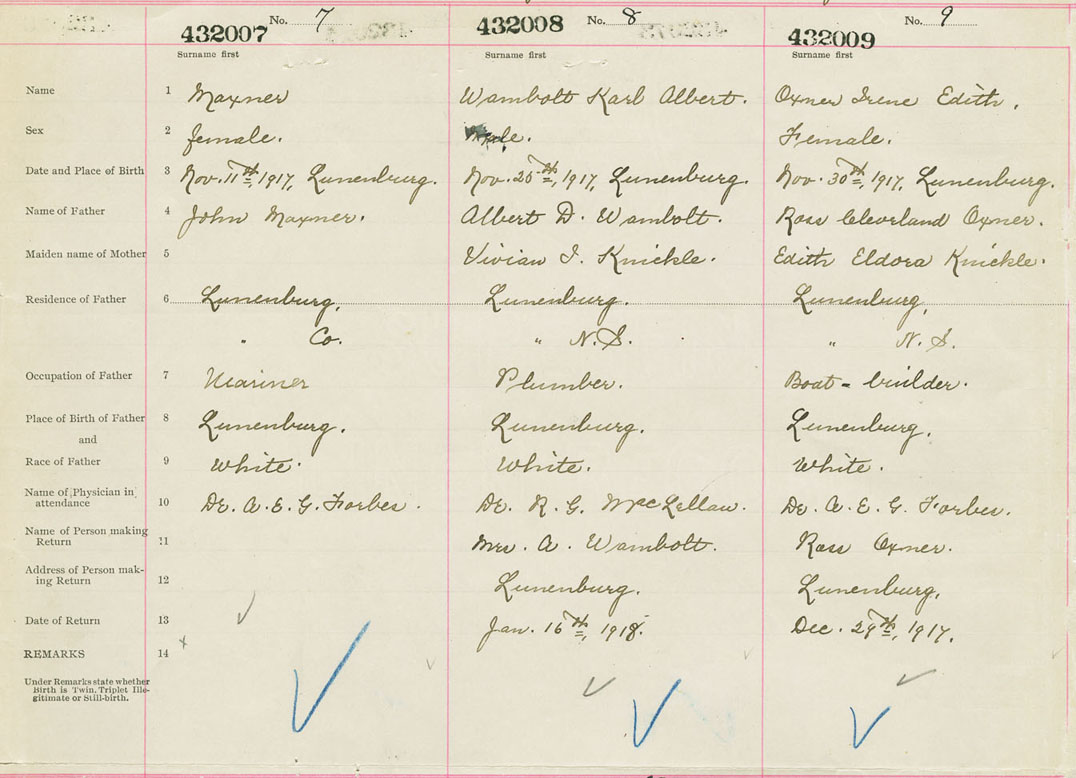 No. 7 No. 8 No. 9
432007 432008 432009
Surname first Surname first Surname first
Name 1 Maxner Wambolt Karl Albert. Oxner Irene Edith.
Sex 2 female. Male. Female.
Date and Place of Birth 3 Nov. 11th, 1917, Lunenburg. Nov. 25th, 1917, Lunenburg. Nov. 30th, 1917, Lunenburg.
Name of Father 4 John Maxner. Albert D. Wambolt. Ross Cleverland Oxner.
Maiden name of Mother 5 Vivian I. Knickle. Edith Eldora Knickle.
Residence of Father 6 Lunenburg, Lunenburg. Lunenburg,
" Co. " N.S. " N.S.
Occupation of Father 7 Mariner Plumber. Boat-builder.
Place of Birth of Father 8 Lunenburg. Lunenburg. Lunenburg.
and
Race of Father 9 White. White. White.
Name of Physician in
attendance 10 Dr. A. E. G. Forbes. Dr. R. G. MacLellan. Dr. A. E. G. Forbes.
Name of Person making
Return 11 Mrs. A. Wambolt. Ross Oxner.
Address of Person mak-
ing Return 12 Lunenburg. Lunenburg.
Date of Return 13 Jan. 16th, 1918. Dec. 29th, 1917.
REMARKS 14
Under Remarks state whether
Birth is Twin, Triplet Ille-
gitimate or Still-birth.